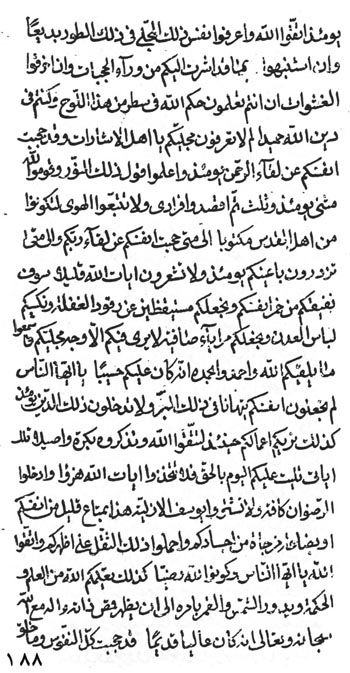 يومئذ اتقوا الله واعرفوا نفس ذلك المجلى فى ذلك الطور بديعًا
وان اشتبهوا بما قد اشرت اليكم من ورآء الحجبات وانا نزفوا
الغشوات ان انتم تعلمون حكم الله فى سطر من هذا اللوح وكنتم فى
دين الله حميدا لم لا تعرفون مجليكم يا اهل الاشارات وقد حجبت
انفسكم عن لقآء الرحمن يومئذ واعلموا قول ذلك النور وقوموا لله
مثنى يومئذ وثلث ثم افضد وافرادى ولا تتبعوا الهوى لتكونوا
من اهل القدس مكتوبا الى متى حجبت انفسكم عن لقآء ربكم والى متى
تزورون باعينكم يومئذ ولا تشعرون ايات الله قليلا سوف
نفيقكم من انفسكم ونجعلكم مستيقظين عن رقود الغفلة ونكسيكم
لباس العدل ونجعلكم مرايآء صافية لا يرى فيكم الا وجه مجليكم فاسمعوا
ما يلقيكم الله واحمدوا لنجده انه كان عليكم حسيبا يا ايها الناس
لم تجعلون انفسكم بهتانا فى ذلك البر ولا تدخلون ذلك الدين يومئذ
كذلك نزيكم اعمالكم حينئذ لتتقوا الله وتذكروه بكرة واصيلا تلك
اياتى تليت عليكم اليوم بالحق فلا تتخذوا ايات الله هزوا وادخلوا
الرضوان كافة ولا تشتروا يوسف الازلية هذا بمتاع قليل من انفسكم
او بضاعة مزجاة من اجسادكم واحملوا ذلك الثقل على اظهركم واتقوا
الله يا ايها الناس وكونوا لله رضيا كذلك يعلمكم الله من العلم و
الحكمة ويدور الشمس والقمر بامره الى ان يظهر ذاته والله مع
سبحانه وتعالى انه كان عاليا قديمًا قد حجبت كل النفوس وما خلق
١٨٨